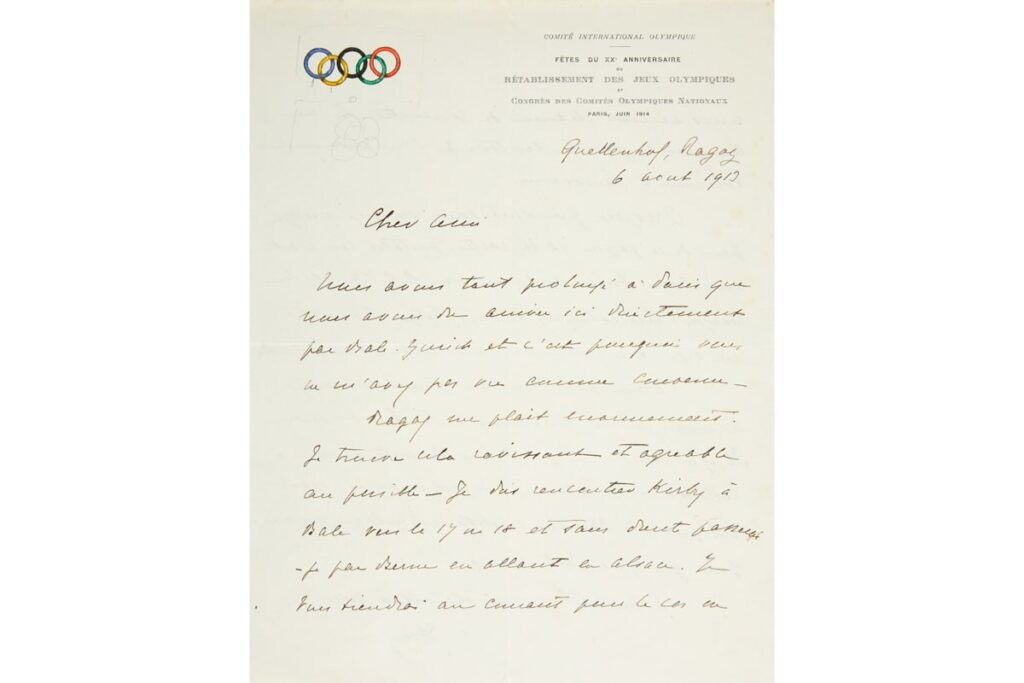 COMITÉ INTERNATIONAL OLYMPIQUE
FÊTES DU XXe ANNIVERSAIRE
DU
RÉTABLISSEMENT DES JEUX OLYMPIQUES
ET
CONGRÈS DES COMITÉS OLYMPIQUES NATIONAUX
PARIS, JUIN 1914
Quellenhof, Ragaz
6 aout 1913
Cher ami
Nous avons tant prolongé à Paris que
nous avons du arriver ici directement
par Bale-Zurich et c'est pourquoi vous
ne m'avez pas vu comme convenu –
Ragaz me plait enormement.
Je trouve cela ravissant et agreable
au possible – Je dois rencontrer Kirby à
Bale vers le 17 ou 18 et sans doute passerai
-je par Berne en allant en alsace. Je
vous tiendrai au courant pour le cas ou